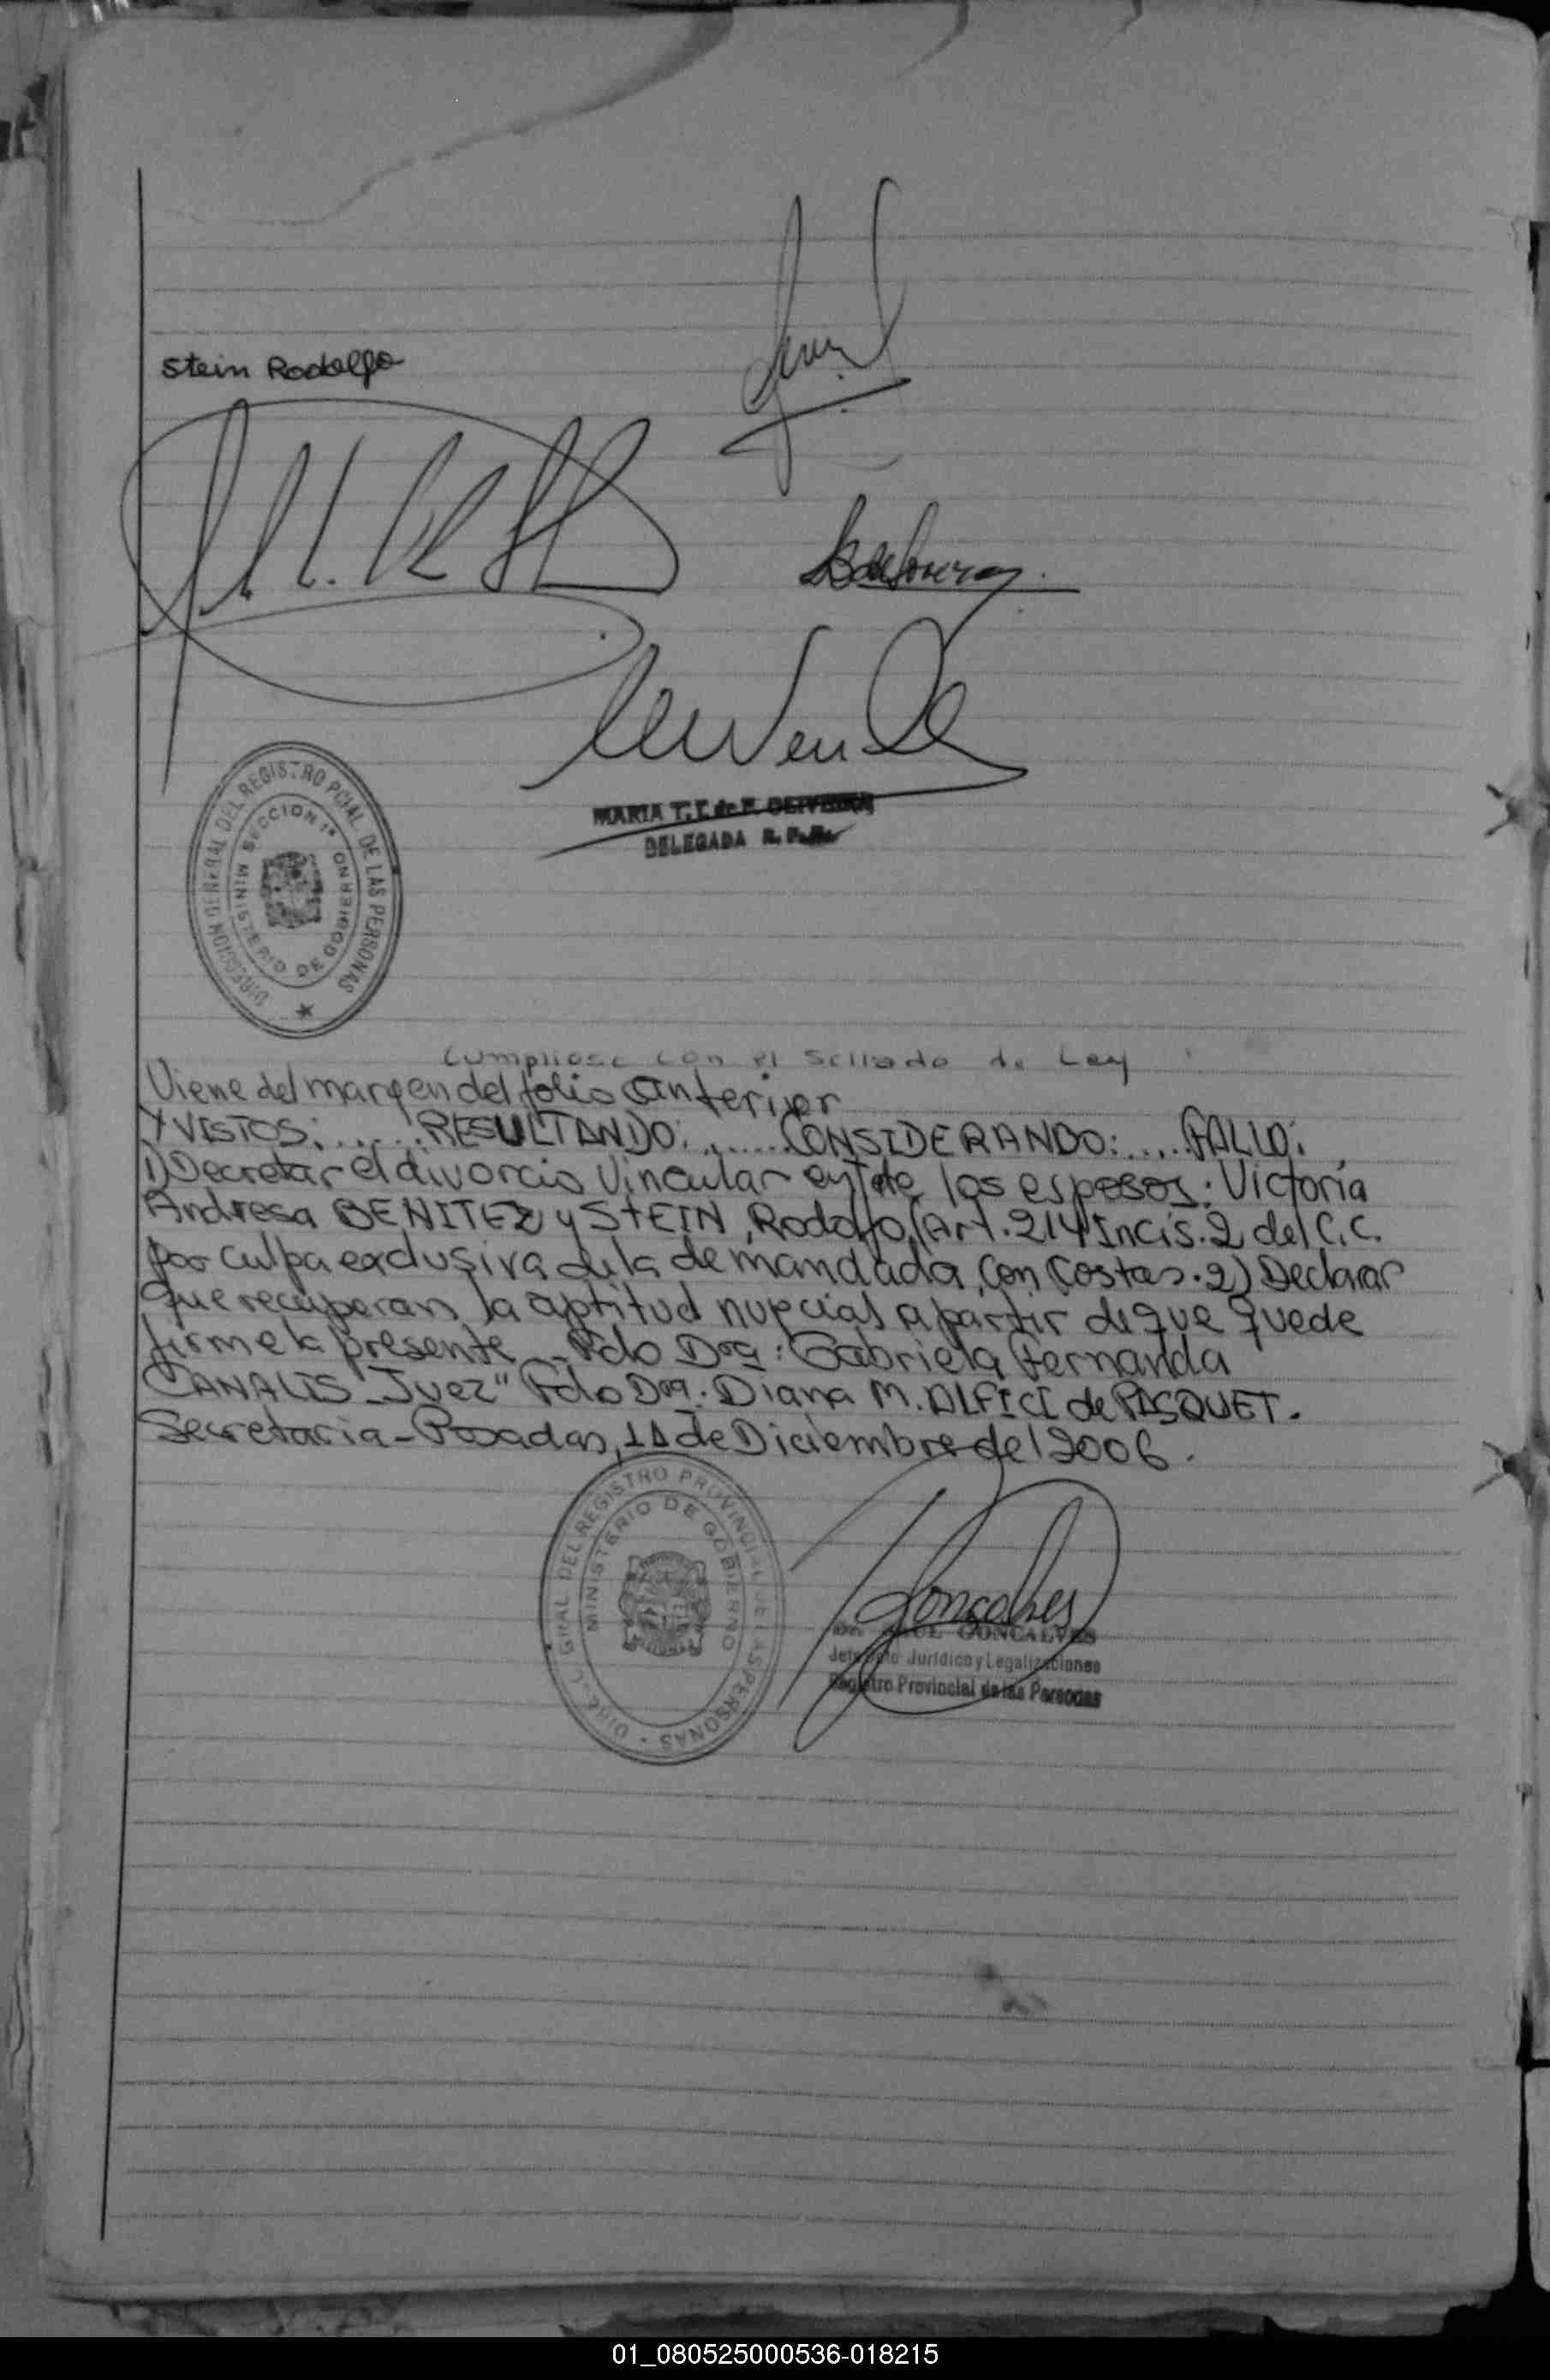 Stein Rodolfo
MARIA T. T. de F. OLIVEIRA
DELEGADA R. P. P.
DIRECCION GENERAL DEL REGISTRO PCIAL. DE LAS PERSONAS
SECCION 1ª
MINISTERIO DE GOBIERNO
Cumpliose con el Sellado de Ley
Viene del margen del folio anterior
Y VISTOS:...... RESULTANDO:...... CONSIDERANDO:..... FALLO:
1) Decretar el divorcio Vincular entre los esposos: Victoria
Andresa BENITEZ y STEIN, Rodolfo, (Art. 214 Incis. 2 del C.C.
por culpa exclusiva de la demandada, Con Costas. 2) Declarar
que recuperan la aptitud nupcial a partir de que quede
firme la presente - Fdo Dra: Gabriela Fernanda
CANALIS - Juez" Fdo Dra. Diana M. ALFICI de PASQUET.
Secretaria - Posadas, 11 de Diciembre del 2006.
DIREC. GRAL DEL REGISTRO PROVINCIAL DE LAS PERSONAS
MINISTERIO DE GOBIERNO
Goncalves
GONCALVES
Jefe Dpto Jurídico y Legalizaciones
Registro Provincial de las Personas
01_080525000536-018215